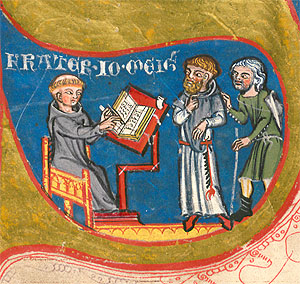 FRATER·IO·MEIG